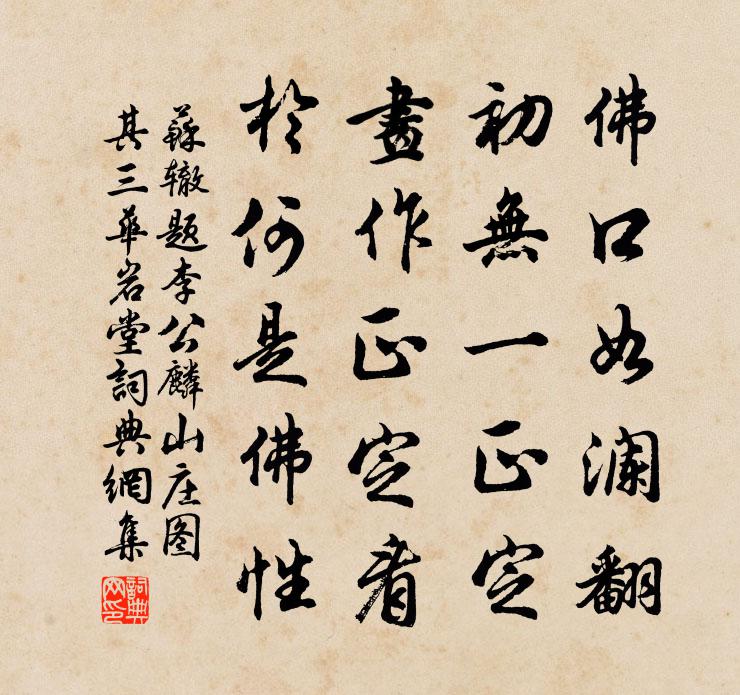 佛口如澜翻
初無一正定
畫作正定看
於何是佛性
蘇辙题李公麟山庄图
其三華岩堂詞典網集
詞典网印